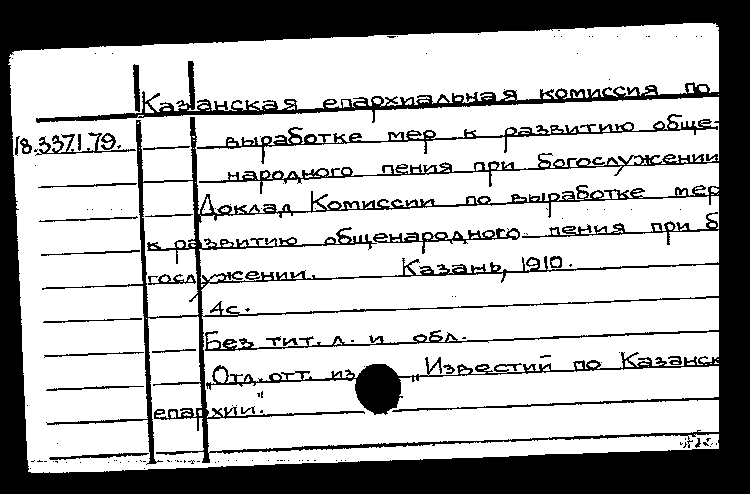 Казанская епархиальная комиссия по
18.337.1.79. выработке мер к развитию обще-
народного пения при богослужении
Доклад Комиссии по выработке мер
к развитию общенародного пения при б
гослужении. Казань, 1910.
4с.
Без тит. л. и обл.
„Отд. отт. из „Известий по Казанск
епархии."